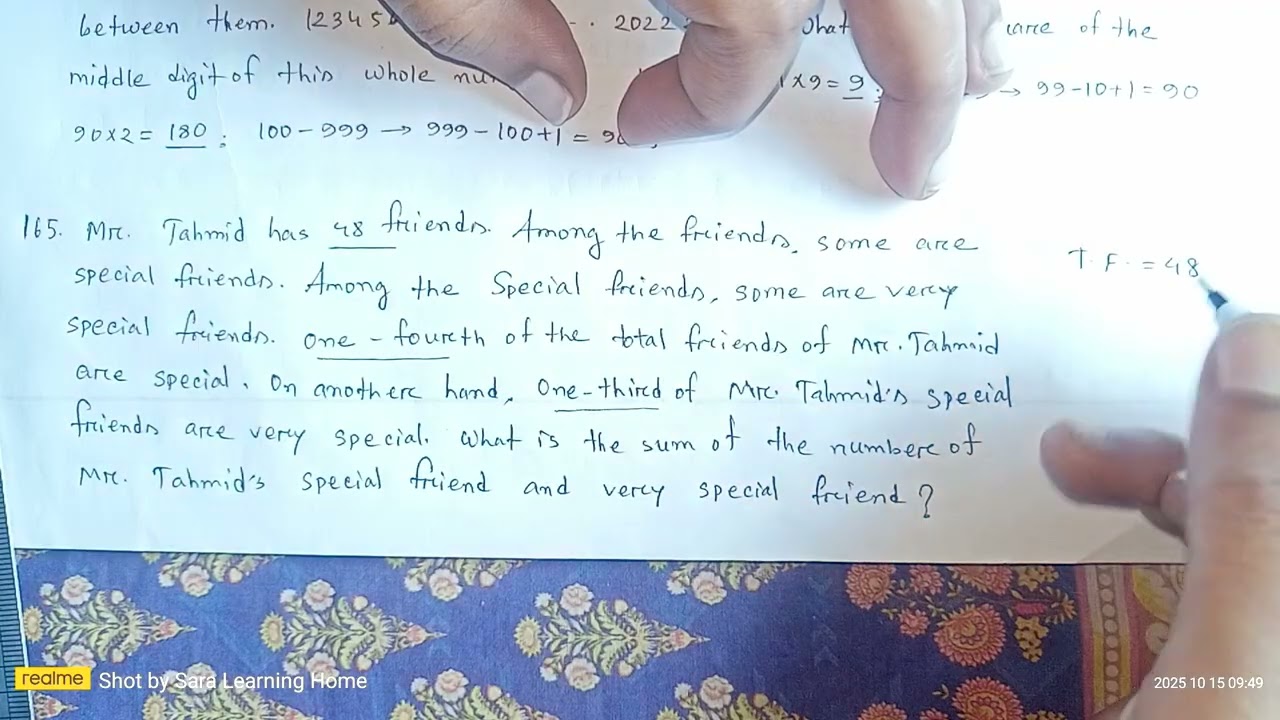 between them. 12345 . 2022 of the
middle digit of this whole 1×9 = 9 → 99-10+1 = 90
90×2 = 180 ; 100 - 999 → 999 - 100+1 =
165. Mr. Tahmid has 48 friends. Among the friends, some are
T. F. = 48
special friends. Among the Special friends, some are very
special friends. one - fourth of the total friends of Mr. Tahmid
are special. On another hand, One-third of Mr. Tahmid's special
friends are very special. What is the sum of the number of
Mr. Tahmid's special friend and very special friend?
realme Shot by Sara Learning Home
2025 10 15 09:49